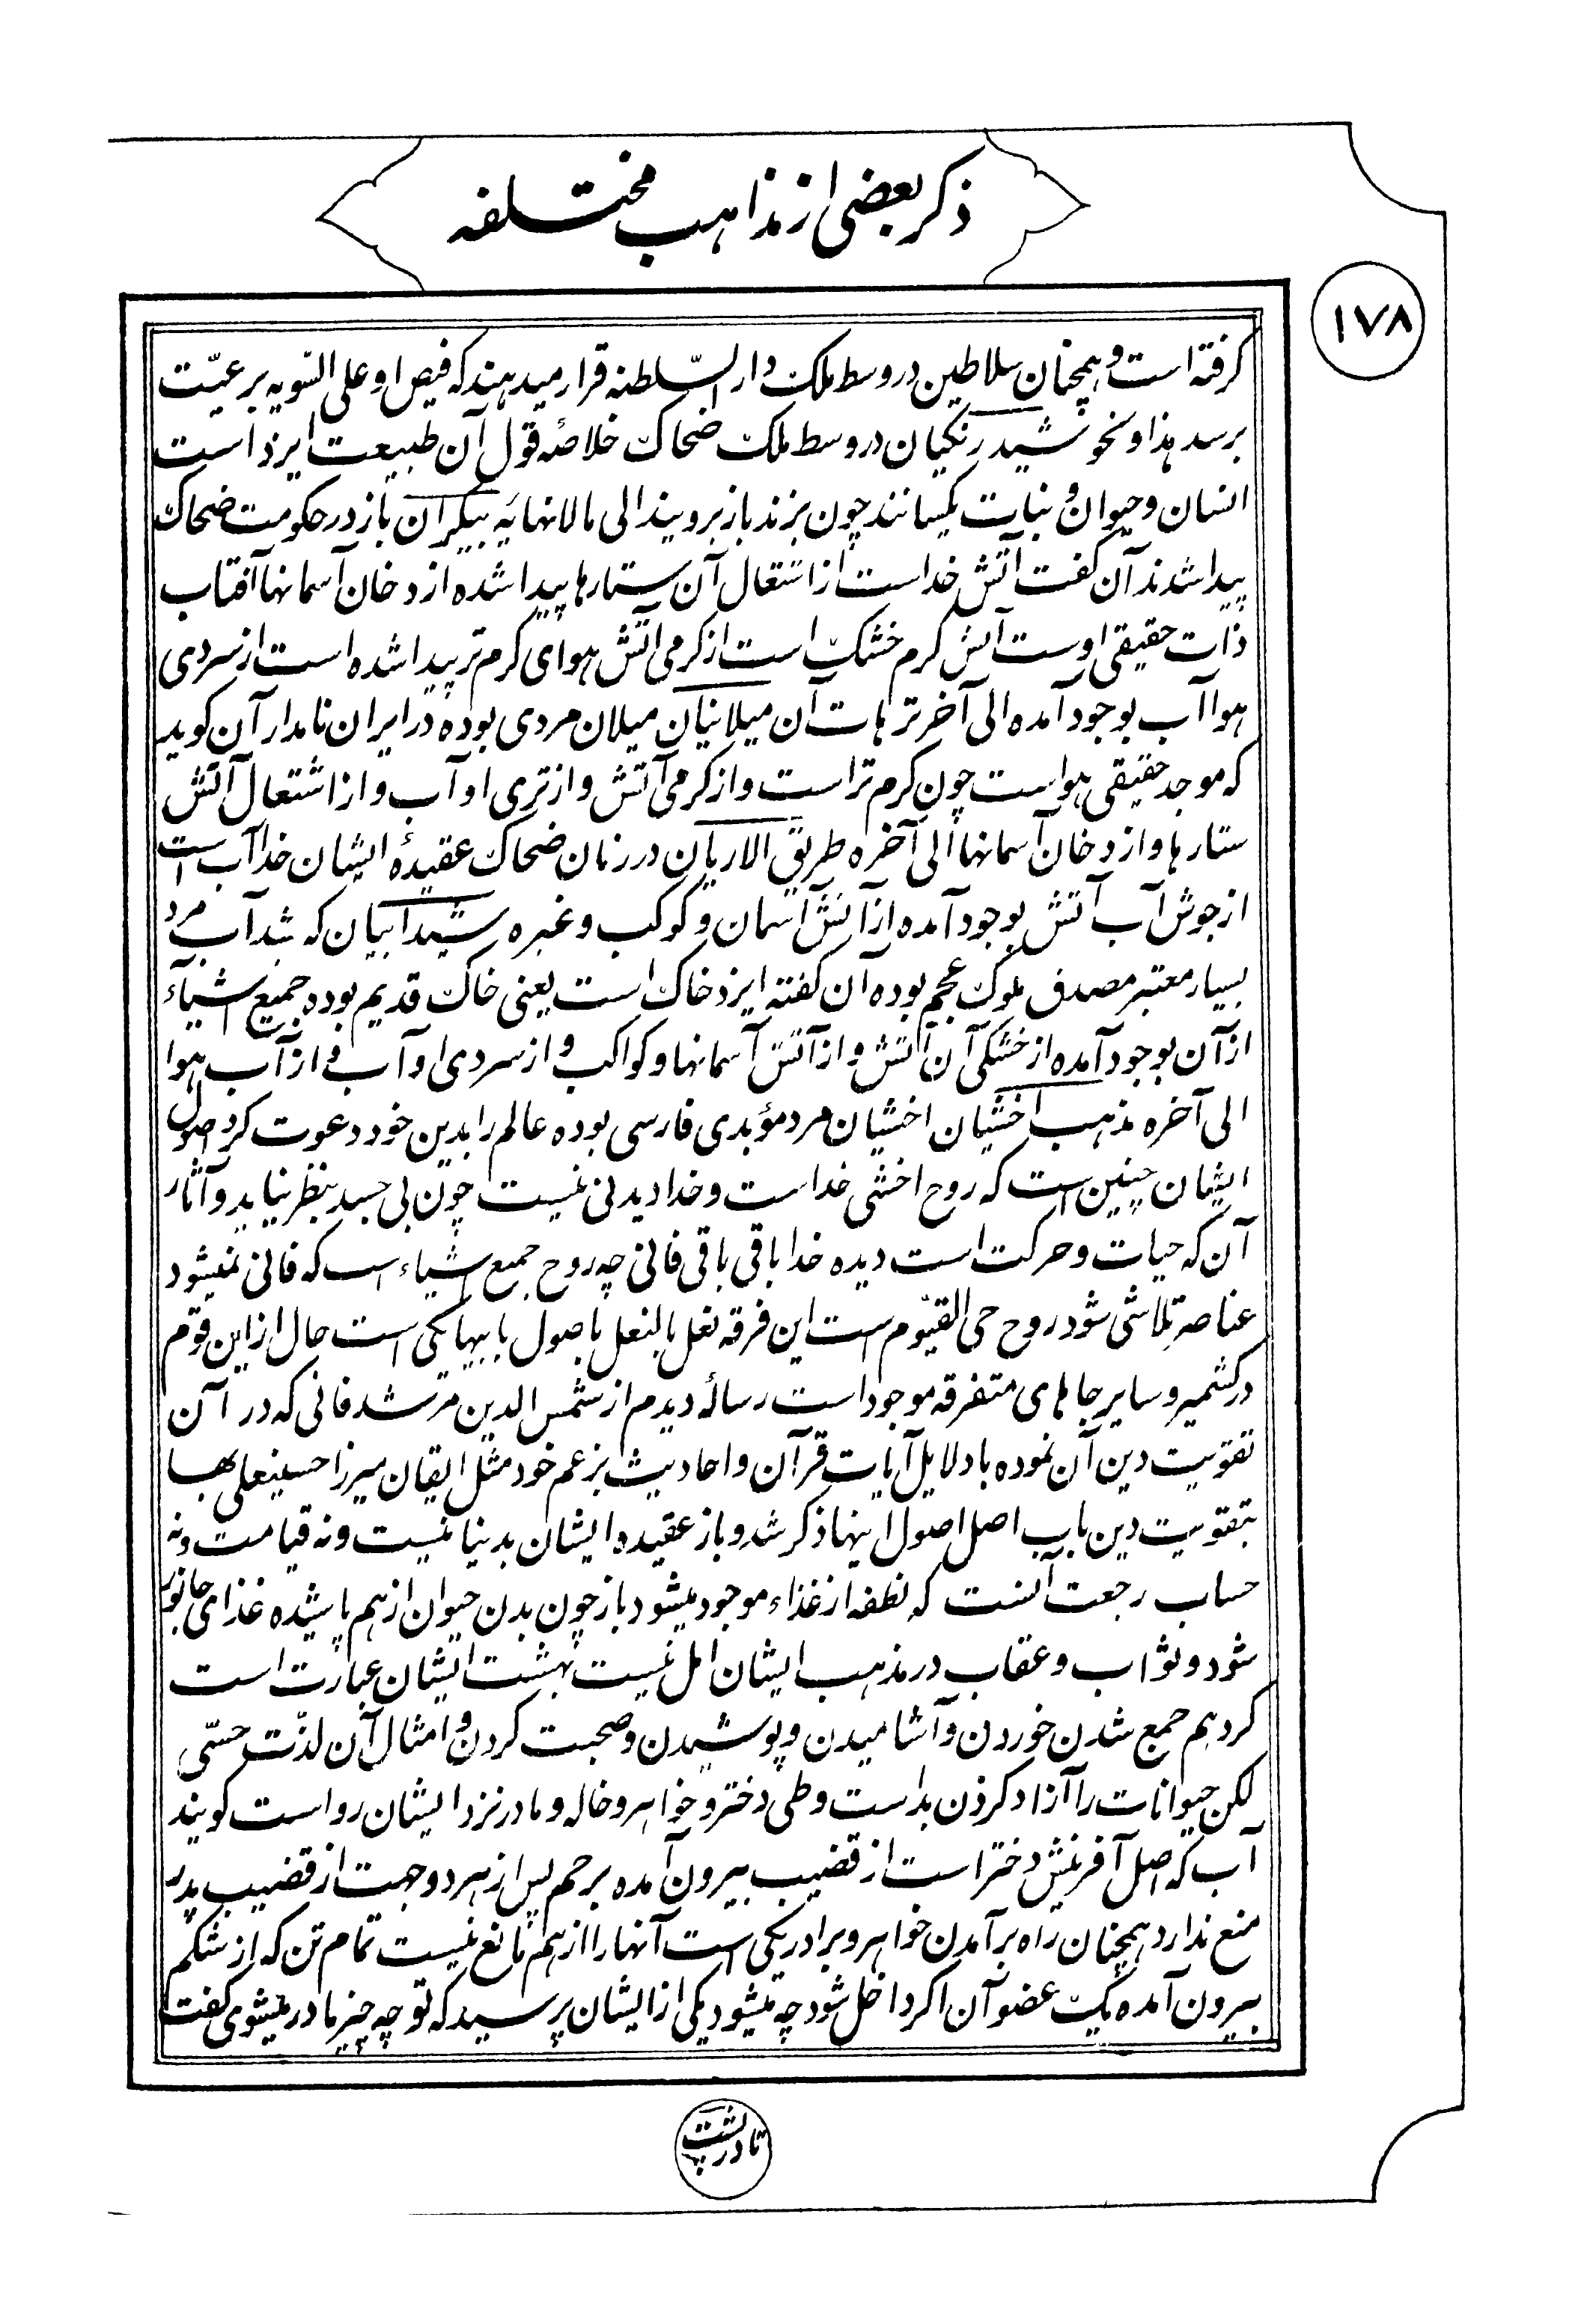 ذکر بعضی از مذاهب مختلفه
۱۷۸
کرفته است و همچنان سلاطین در وسط ملک دار السّلطنه قرار میدهند که فیض او علی السّویه برعیّت
برسد هذا و نحو شیدرنکیان در وسط ملک ضحاک خلاصه قول آن طبیعت ایزد است
انسان و حیوان و نبات یکسانند چون بزند باز برویند الی مالانهایه پیکران باز در حکومت ضحاک
پیدا شدند آن کفت آتش خداست از اشتعال آن ستارها پیدا شده از دخان آسمانها آفتاب
ذات حقیقی اوست آتش کرم خشک است از کرمی آتش هوای کرم تر پیدا شده است از سردی
هوا آب بوجود آمده الی آخر ترهات آن میلانیان میلان مردی بوده در ایران نامدار آن کوید
که موجد حقیقی هواست چون کرم تر است و از کرمی آتش و از تری او آب و از اشتعال آتش
ستارها و از دخان آسمانها الی آخره طریق الاریان در زمان ضحاک عقیدهٔ ایشان خدا آب است
از جوش آب آتش بوجود آمده از آتش آسمان و کوکب و غیره شیدابیان که شیداب مرد
بسیار معتبر مصدق ملوک عجم بوده آن کفته ایزد خاک است یعنی خاک قدیم بوده جمیع اشیاء
از آن بوجود آمده از خشکی آن آتش و از آتش آسمانها و کواکب و از سردی او آب و از آب هوا
الی آخره مذهب اخشیان اخشیان مرد مؤبدی فارسی بوده عالم را بدین خود دعوت کرد اصول
ایشان چنین است که روح اخشی خداست و خدا دیدنی نیست چون بی جسد بنظر نیاید و آثار
آن که حیات و حرکت است دیده خدا باقی باقی فانی چه روح جمیع اشیاء است که فانی نمیشود
عناصر متلاشی شود روح حی القیّوم است این فرقه نعل بالنعل باصول بابیها یکی است حال از این قوم
در کشمیر و سایر جاهای متفرقه موجود است رسالهٔ دیدم از شمس الدین مرشد فانی که در آن
تقویت دین آن نموده با دلایل آیات قرآن و احادیث بزعم خود مثل ایقان میرزا حسینعلی بها
بتقویت دین باب اصل اصول اینها ذکر شد و باز عقیده ایشان بدنیا نیست و نه قیامت و نه
حساب رجعت آنست که نطفه از غذاء موجود میشود باز چون بدن حیوان از هم پاشیده غذای جانور
شود و ثواب و عقاب در مذهب ایشان اهل نیست بهشت ایشان عبارت است
کردهم جمع شدن خوردن و آشامیدن و پوشیدن و صحبت کردن و امثال آن لذّت حسّی
لکن حیوانات را آزاد کردن بد است وطی دختر و خواهر و خاله و مادر نزد ایشان رواست کویند
آب که اصل آفرینش دختر است از قضیب بیرون آمده برحم پس از هر دو جهت از قضیب پدر
منع ندارد همچنان راه برآمدن خواهر و برادر یکی است آنها را از هم مانع نیست تمام تن که از شکم
بیرون آمده یک عضو آن اکر داخل شود چه میشود یکی از ایشان پرسید که تو چه چیز مادر میشوی کفت